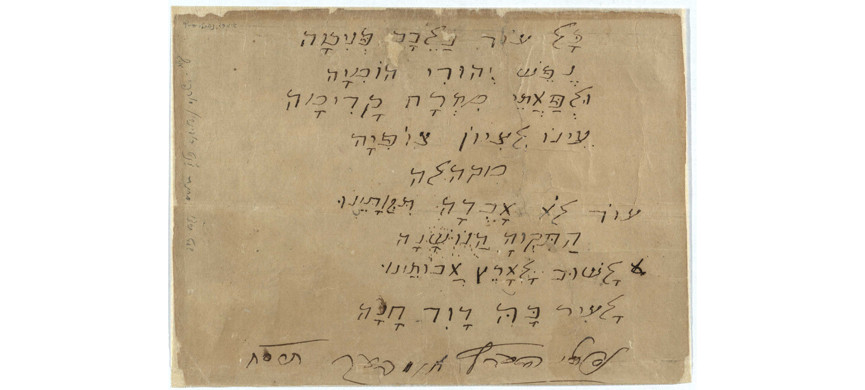 כָּל עוֹד בַּלֵּבָב פְּנִימָה
נֶפֶשׁ יְהוּדִי הוֹמִיָּה
וּלְפַאֲתֵי מִזְרָח קָדִימָה
עֵינוֹ לְצִיוֹן צוֹפִיָּה
מוקהלה
עוֹד לֹא אָבְדָה תִּקְוָתֵינוּ
הַתִּקְוָה הַנוֹשָׁנָה
לָשׁוּב לָאָרֶץ אֲבוֹתֵינוּ
לָעִיר בָּהּ דָוִד חָנָה
נפתלי הערץ אימבער תרסח